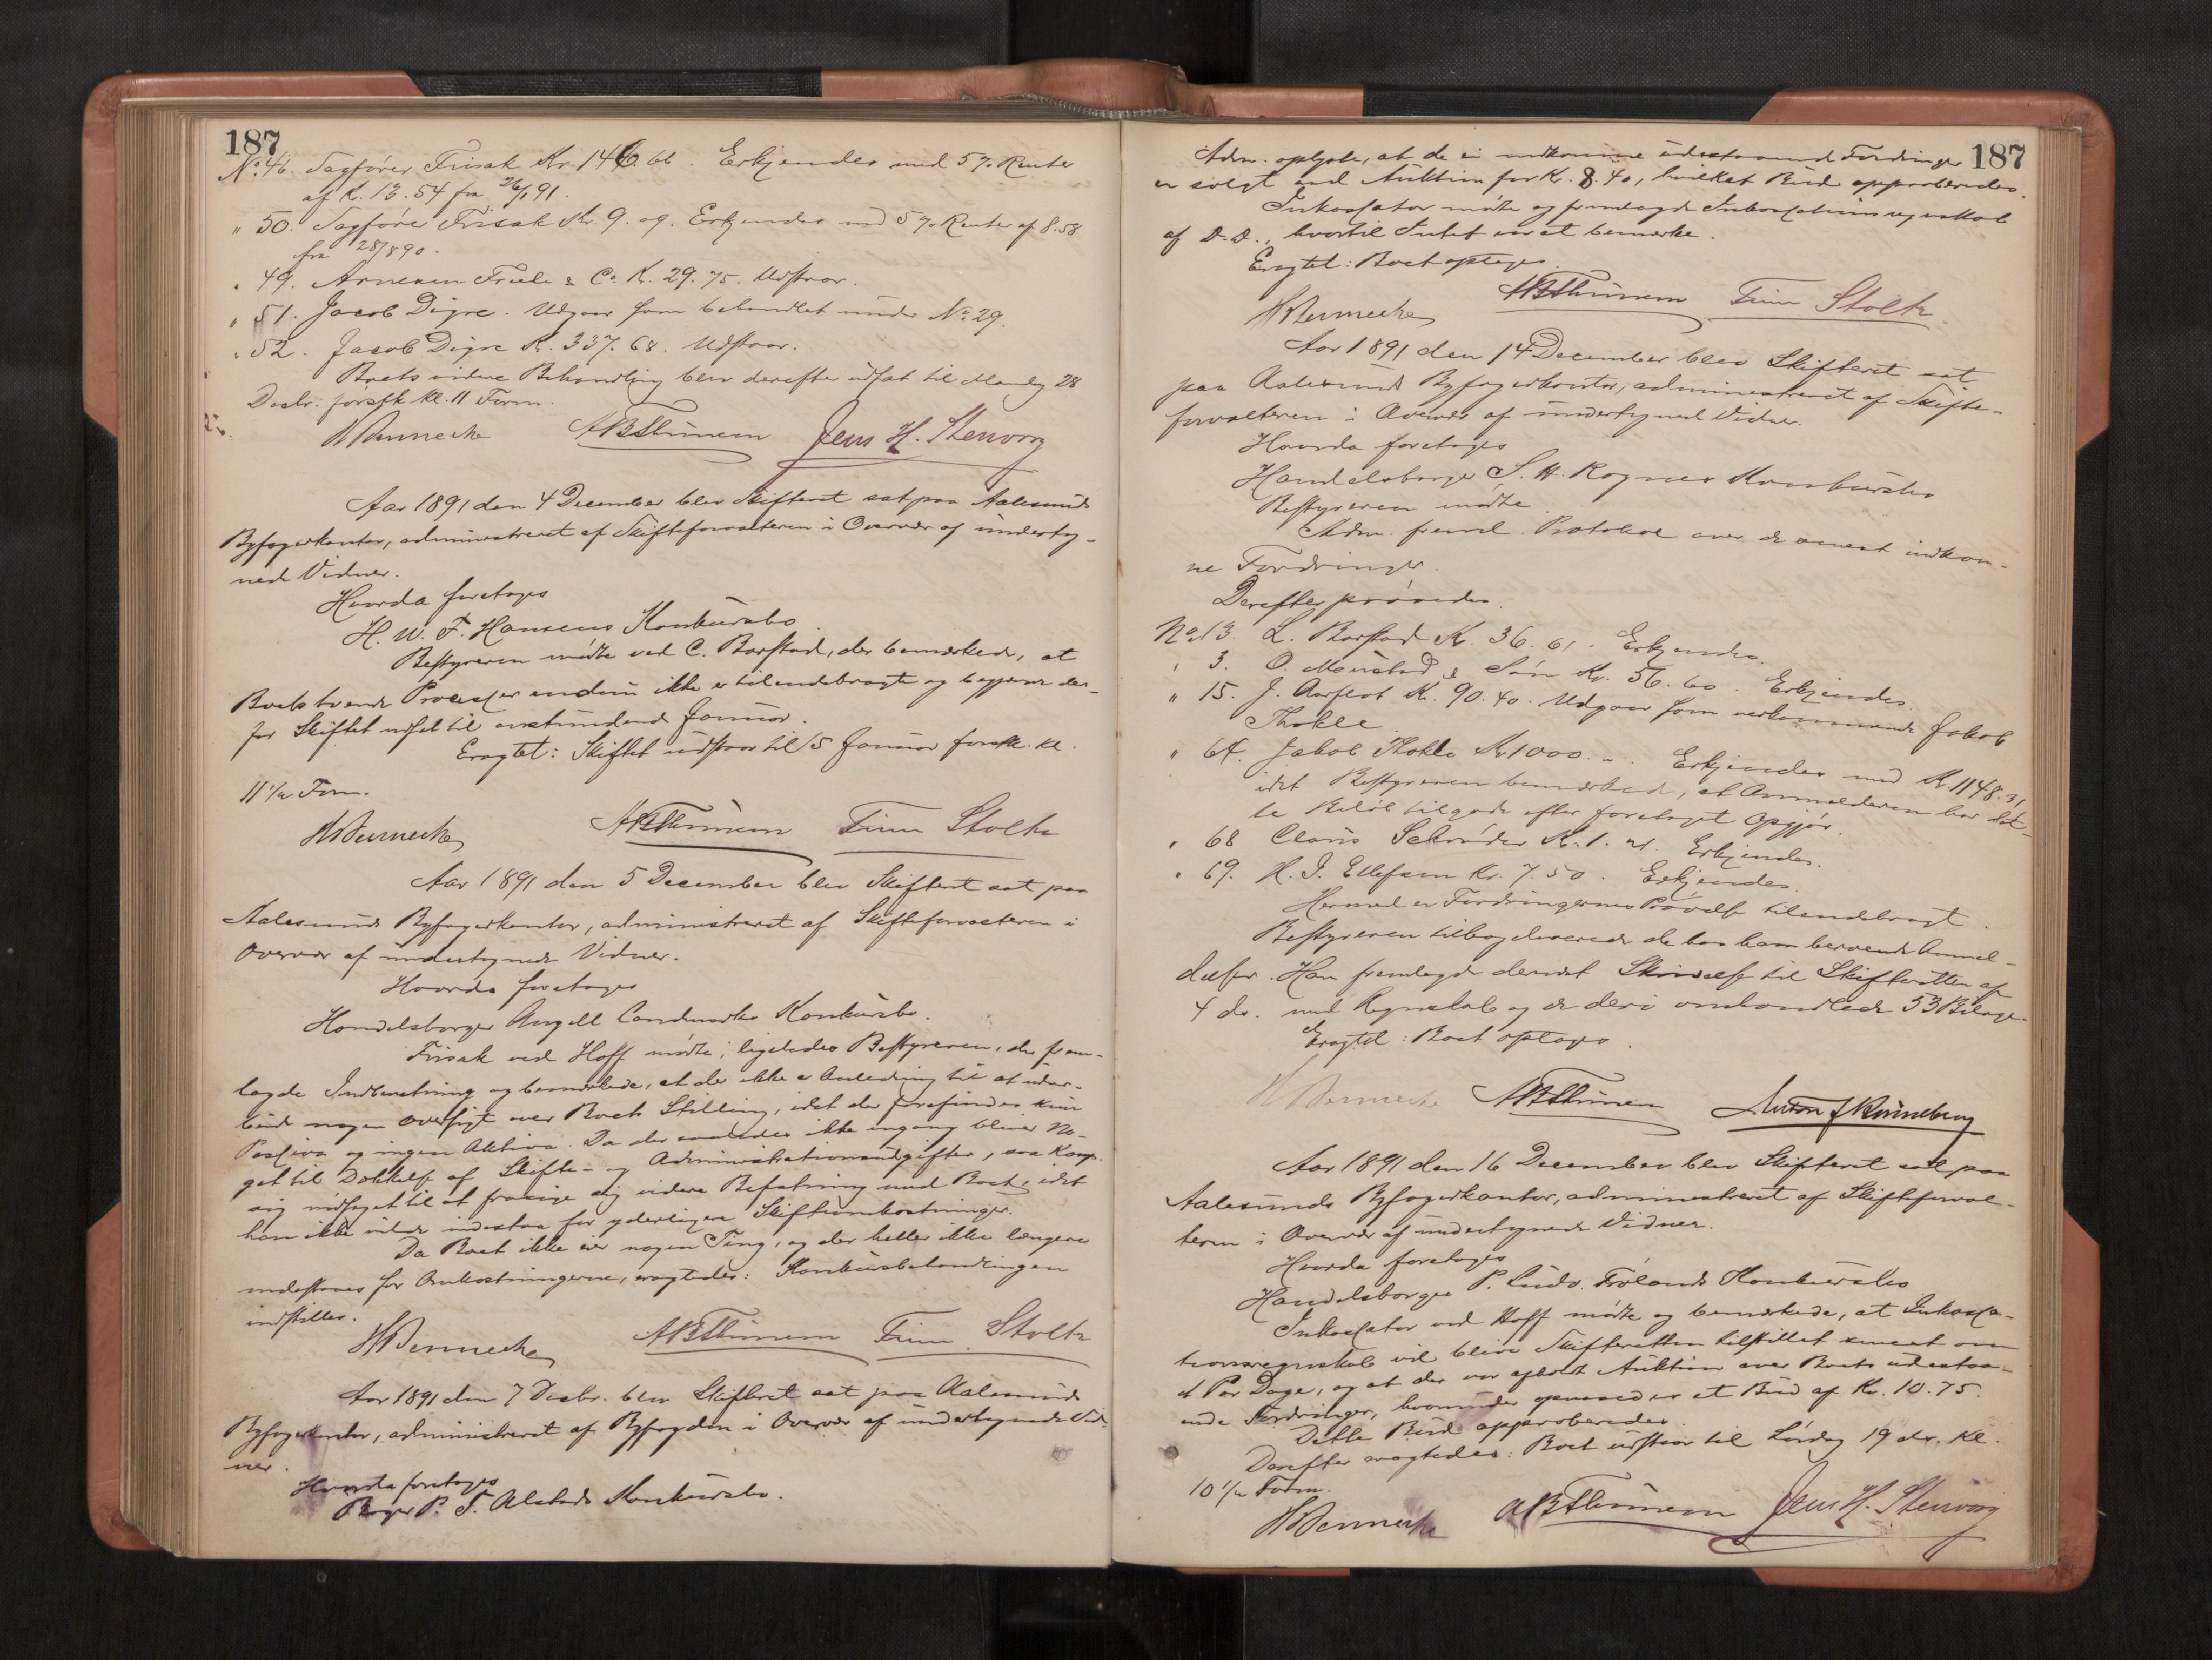 187
No. 46. Sagfører Frisak Kr. 146.66. Erkjendes med 5 % Renter
af Kr. 13.54 fra 26/1 91.
" 50. Sagfører Frisak Kr. 9. 09. Erkjendes med 5 % Renter af 8.58
fra 28/8 90.
" 49. Arnesen Friele & Co. Kr. 29.75. Udstaar.
" 51. Jacob Digre. Udgaar som behandlet under No. 29.
" 52. Jacob Digre Kr. 337.68. Udstaar.
Boets videre Behandling blev derefter udsat til Mandag 28
Decbr. førstk. Kl. 11 Form.
Jens H. Stenvaag
Aar 1891 den 4 December blev Skifteret sat paa Aalesunds
Byfogedkontor, administreret af Skifteforvalteren i Overvær af underteg-
nede Vidner.
Hvorda foretoges
H. W. F. Hansens Konkursbo.
Bestyreren mødte ved C. Barstad, der bemærkede, at
Boets tvende Processer endnu ikke er tilendebragte og begjærede der-
for Skiftet udsat til anstundende Januar.
Eragtet: Skiftet udstaar til 15 Januar førstk. Kl.
11 1/2 Form.
Finn Stoltz
Aar 1891 den 5 December blev Skifteret sat paa
Aalesunds Byfogedkontor, administreret af Skifteforvalteren i
Overvær af undertegnede Vidner.
Hvorda foretoges
Handelsborger Angell Landmarks Konkursbo.
Frisak ved Hoff mødte; ligeledes Bestyreren, der frem-
lagde Indberetning og bemærkede, at der ikke er Anledning til at udar-
beide nogen Oversigt over Boets Stilling, idet der forefindes kun
Passiva og ingen Aktiva. Da der saaledes ikke engang bliver No-
get til Dækkelse af Skifte- og Administrationsudgifter, saa
sig nødsaget til at frasige sig videre Befatning med Boet, idet
han ikke vilde indestaa for yderligere Skifteomkostninger.
Da Boet ikke eier nogen Ting, og der heller ikke længere
indestaaes for Omkostningerne, eragtedes: Konkursbehandlingen
indstilles.
Finn Stoltz
Aar 1891 den 7 Decbr. blev Skifteret sat paa Aalesunds
Byfogedkontor, administreret af Byfogden i Overvær af undertegnede Vid-
ner.
Hvorda foretoges
Borger P. T. Alstads Konkursbo.
187
Adm. oplyste, at de ei indkomne udestaaende Fordringer
er solgt ved Auktion for Kr. 8.40, hvilket Bud approberedes.
Inkassator mødte og fremlagde Inkassationsregnskab
af D.D., hvortil Intet var at bemærke.
Eragtet: Boet optages.
Finn Stoltz
Aar 1891 den 14 December blev Skifteret sat
paa Aalesunds Byfogedkontor, administreret af Skifte-
forvalteren i Overvær af undertegnede Vidner.
Hvorda foretoges
Handelsborger S. H. Rognes Konkursbo
Bestyreren mødte.
Adm. freml. Protokol over de senest indkom-
ne Fordringer.
Derefter prøvedes.
No. 13. L. Barstad Kr. 36.61. Erkjendes.
" 3. O. Mousted & Søn Kr. 56.60. Erkjendes.
" 15. J. Aarflot Kr. 90.40. Udgaar som vedkommende Jakob
Thokle
" 64. Jakob Thokle Kr. 1000.-. Erkjendes med Kr. 1148.31,
idet Bestyreren bemærkede, at Anmelderen har det-
te Beløb tilgode efter foretaget Opgjør.
" 68 Claus Schrøder Kr. 1.21. Erkjendes.
" 69. H. J. Ellefsen Kr. 7.50. Erkjendes.
Hermed er Fordringernes Prøvelse tilendebragt.
Bestyreren tilbageleverede de hos ham beroende Anmel-
delser. Han fremlagde dernæst Skrivelse til Skifteretten af
4 ds. med Regnskab og de deri omhandlede 53 Bilage.
Eragtet: Boet optages.
Anton J Rønneberg
Aar 1891 den 16 December blev Skifteret sat paa
Aalesunds Byfogedkontor, administreret af Skifteforval-
teren i Overvær af undertegnede Vidner.
Hvorda foretoges
Handelsborger P. Ludv. Frølands Konkursbo
Inkassator ved Hoff mødte og bemærkede, at Inkassa-
tionsregnskab vil blive Skifteretten tilstillet senest om
et Par Dage, og at der var afholdt Auktion over Boets udestaa-
ende Fordringer, hvorunder opnaaedes et Bud af Kr. 10.75.
Dette Bud approberedes.
Derefter eragtedes: Boet udstaar til Lørdag 19 ds. Kl.
10 1/2 Form.
Jens H. Stenvaag